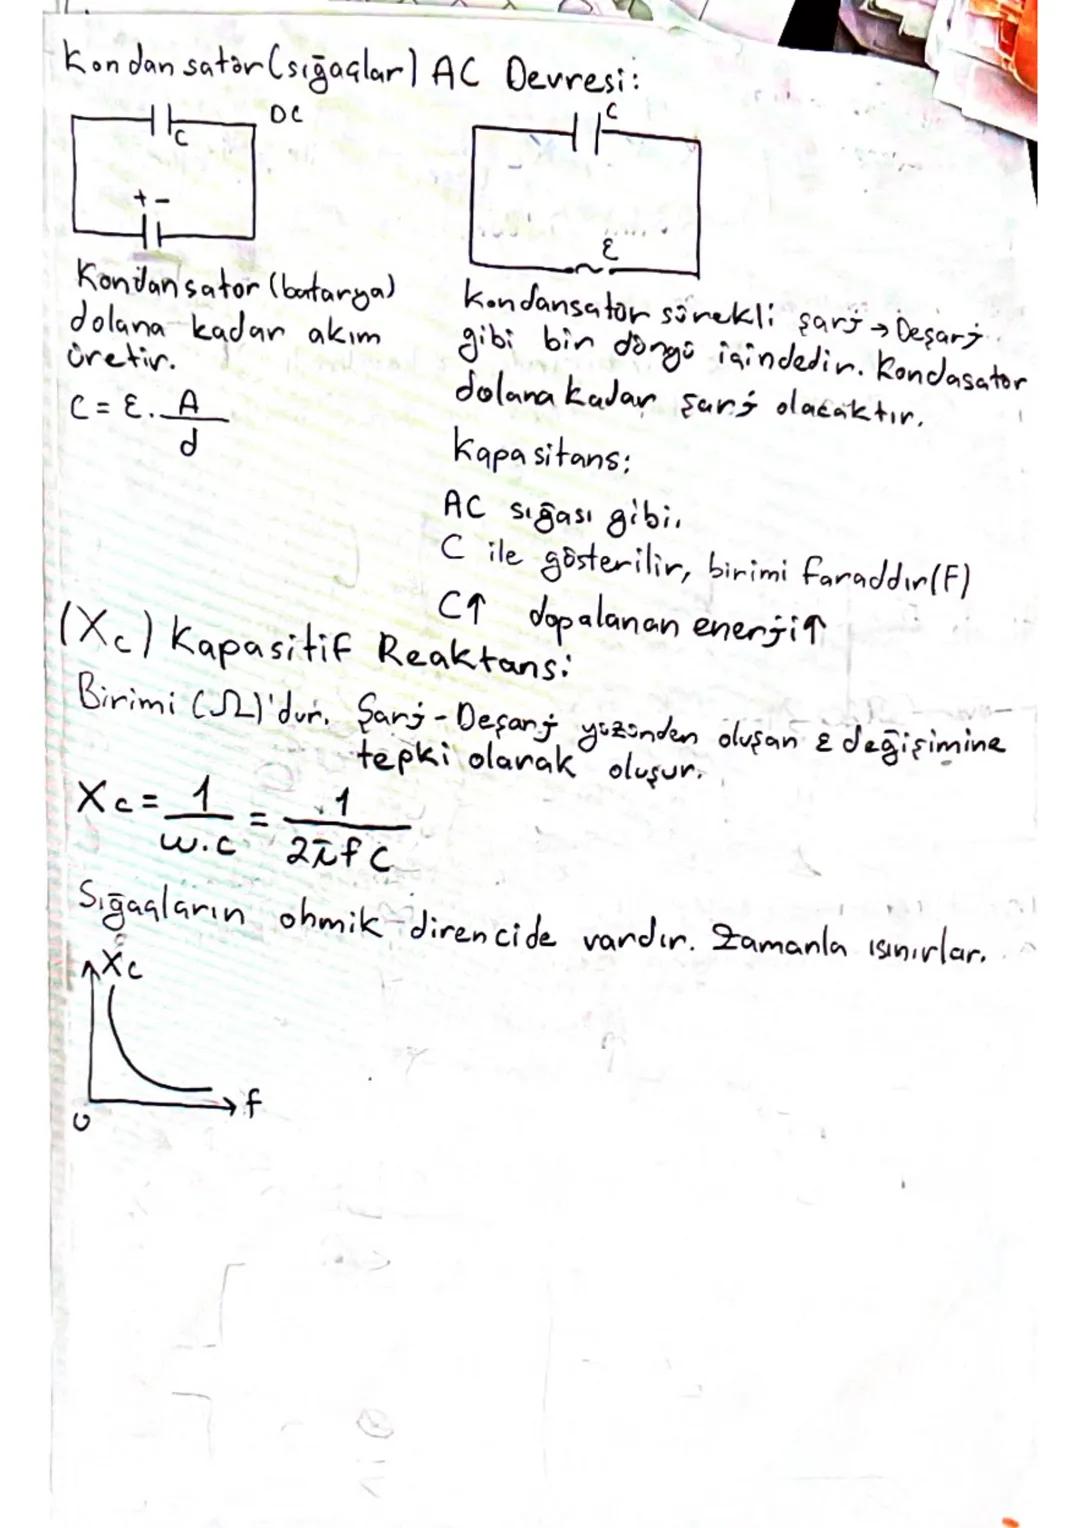 Kondansatör (sığaçlar) AC Devresi:
C
DC
+ -
Kondansator (batarya)
dolana kadar akım
üretir.
C = ε. A/d
C
ε
Kondansatör sürekli şarj → Deşarj
gibi bir döngü içindedir. Kondasator
dolana kadar şarj olacaktır.
Kapasitans:
AC sığası gibi.
C ile gösterilir, birimi faraddır (F)
C↑ dopalanan enerji↑
(Xc) Kapasitif Reaktans:
Birimi (Ω)'dur. Şarj-Deşarj yüzünden oluşan ε değişimine
tepki olarak oluşur.
Xc = 1/w.c = 1/2πfC
Sığaçların ohmik direncide vardır. Zamanla ısınırlar.
Xc
f
0